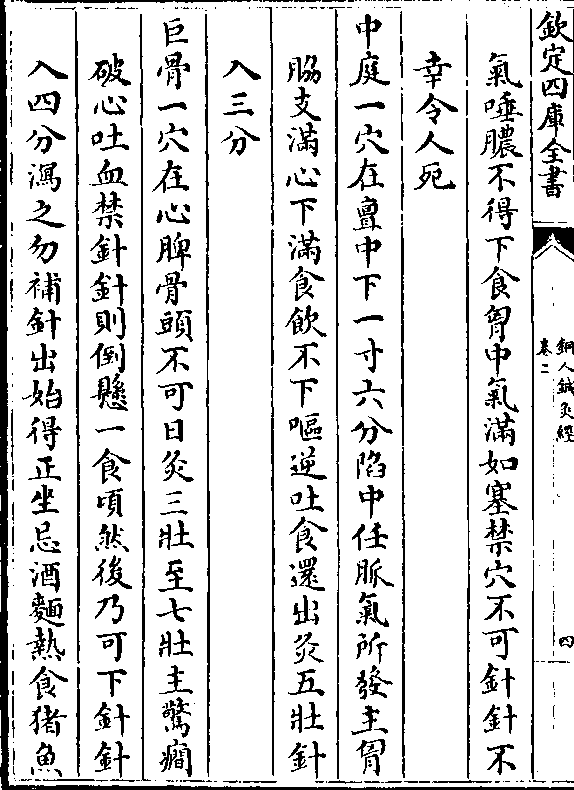 欽定四庫全書
銅人鍼灸經
卷二
四
氣唾膿不得下食胷中氣滿如塞禁穴不可針針不
幸令人死
中庭一穴在亶中下一寸六分陷中任脈氣所發主胷
脇支滿心下滿食飲不下嘔逆吐食還出灸五壯針
入三分
巨骨一穴在心脾骨頭不可日灸三壯至七壯主驚癇
破心吐血禁針針則倒懸一食頃然後乃可下針針
入四分瀉之勿補針出始得正坐忌酒麵熱食猪魚